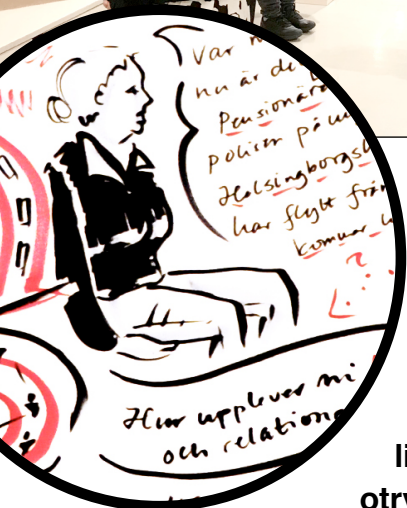 var
nu är de
Pensionärs
poliser på
Helsingborgs
har flytt från
kommer
Hur upplever ni
och relatione
li
otry